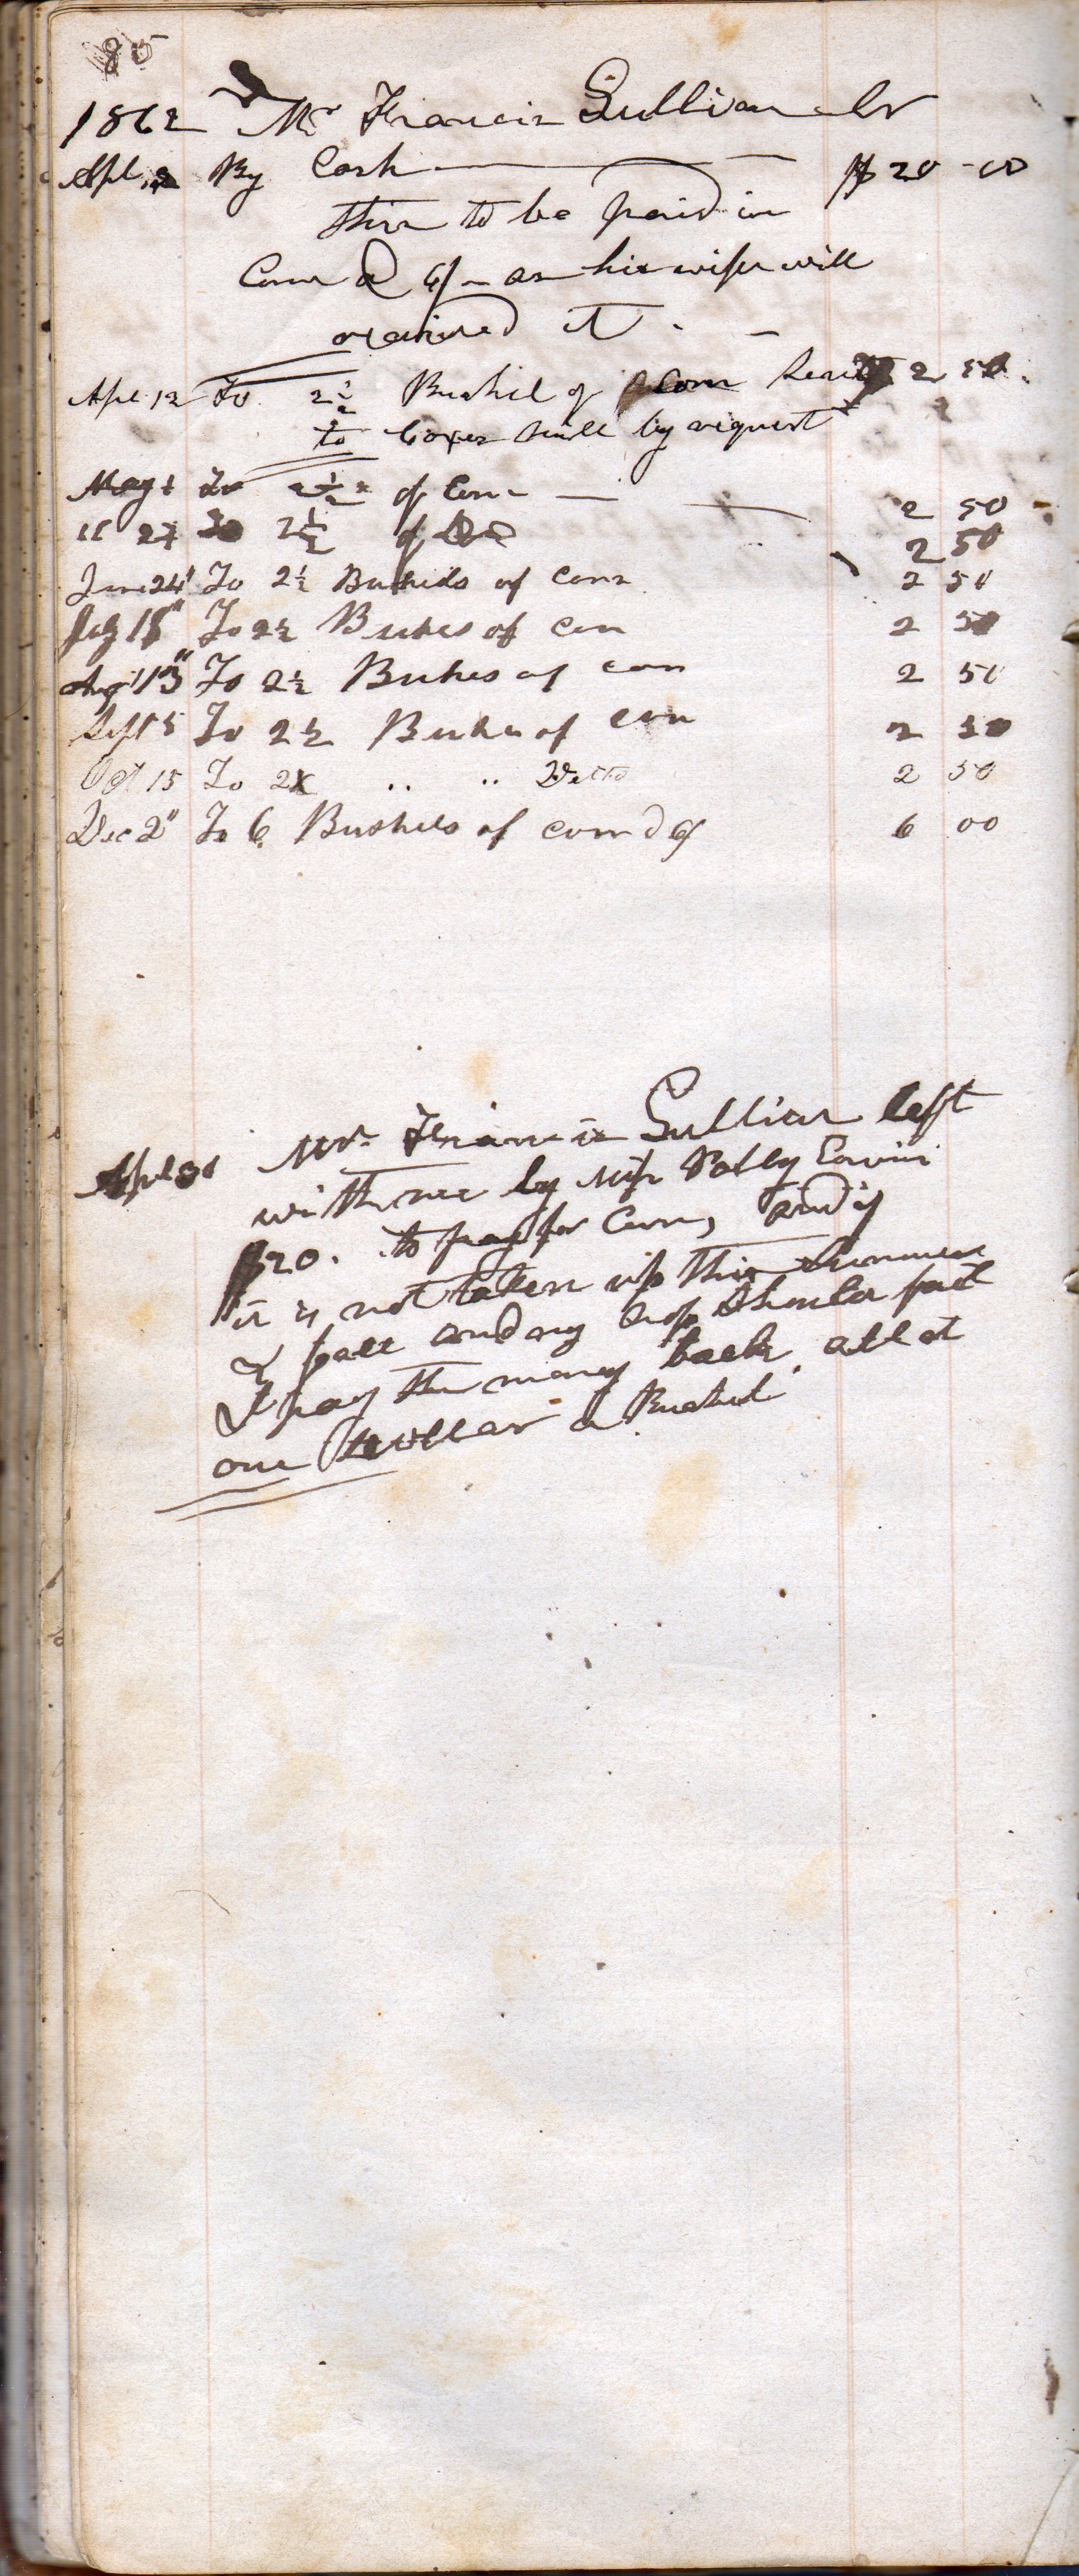 80
1862 Mr Francis Sullivan Cr
Apl 2 By Cash $ 20 - 00
this to be paid in
Corn @ 6/ - as his wife will
required it. -
Apl 12 To 2 1/2 Bushel of Corn Sent 2 50
to Coxes mill by request
May 1 To 2 1/2 " of Corn 2 50
" 27 To 2 1/2 of Do 2 50
June 24" To 2 1/2 Bushels of corn 2 50
July 18" To 2 1/2 Bushes of con 2 50
Aug 13" To 2 1/2 Bushes of con 2 50
Sept 5 To 2 1/2 Bushes of con 2 50
Oct 15 To 2 " " Ditto 2 50
Dec 2" To 6 Bushels of corn @ 6/ 6 00
Mr Francis Sullivan left
Apl
with me by Mifs Polly
$20. to pay for Corn, and if
it is not taken up this Summer
& fall and my crop Should fail
I pay the money back all at
one Dollar a Bushel